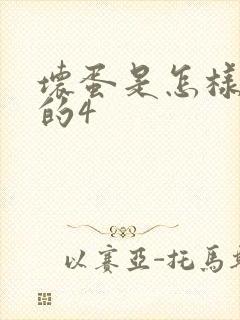 壞蛋是怎樣
的4
以賽亞-托馬